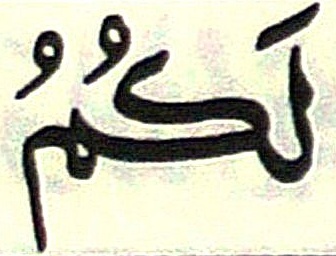 لَكُمُ